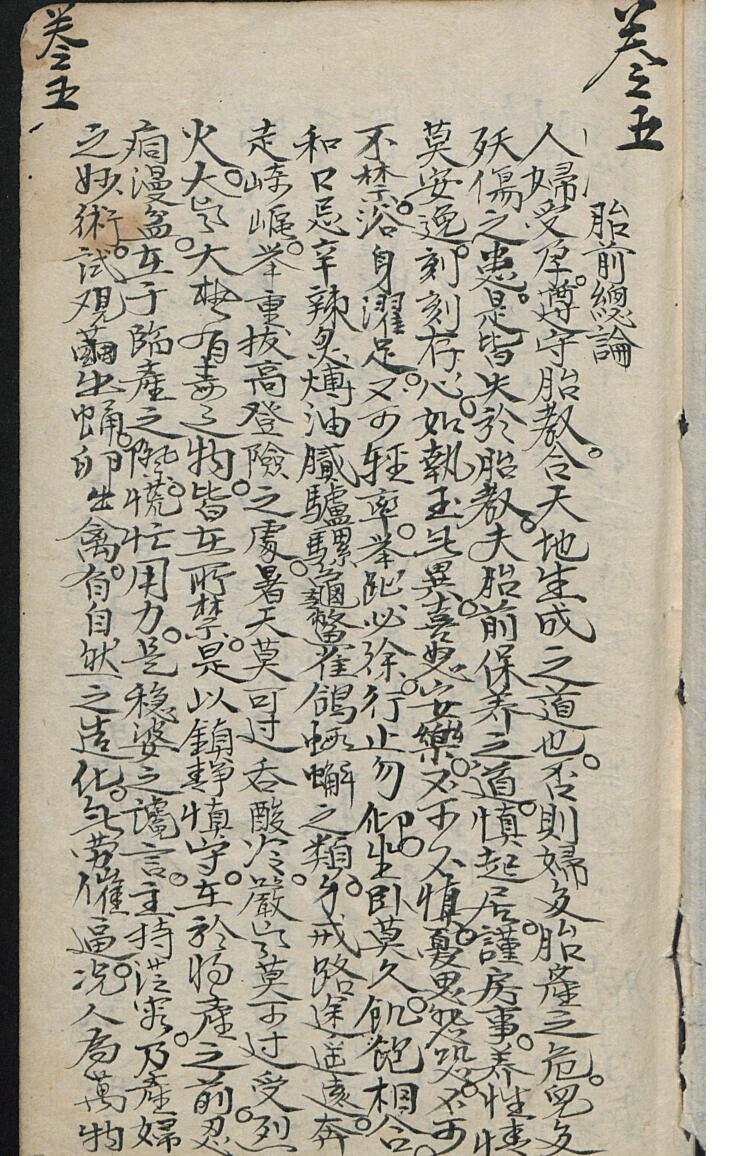 卷之五
胎前總論
人婦受孕。遵守胎教。合天地生成之道也。否則婦多胎產之危。兒多
殀傷之患。是皆失於胎教。夫胎前保养之道。慎起居。謹房事。养性情
莫安逸。刻刻存心。如執玉無異。喜怒安樂。不可不慎。憂思怨恐。不可
不禁。浴身濯足。不可輕率。举趾必徐。行止勿仰。坐卧莫久。飢飽相合。
和口忌辛辣炙煿油膩驢騾龜鱉雀鴿蝦蠏之類。身戒路途遥遠。奔
走崎嶇。举重拔高登險之處。暑天莫可过呑酸冷。嚴寒莫可过受烈
火。大寒大热有毒之物。皆在所禁。是以鎮靜慎守。在於将產之前。忍
痛漫盆。在于臨產之際。慌忙用力。是穏婆之讒言。主持從容。乃產婦
之妙術。試观繭出蛹。卵出禽。有自然之造化。無劳催逼。况人為萬物
卷之五